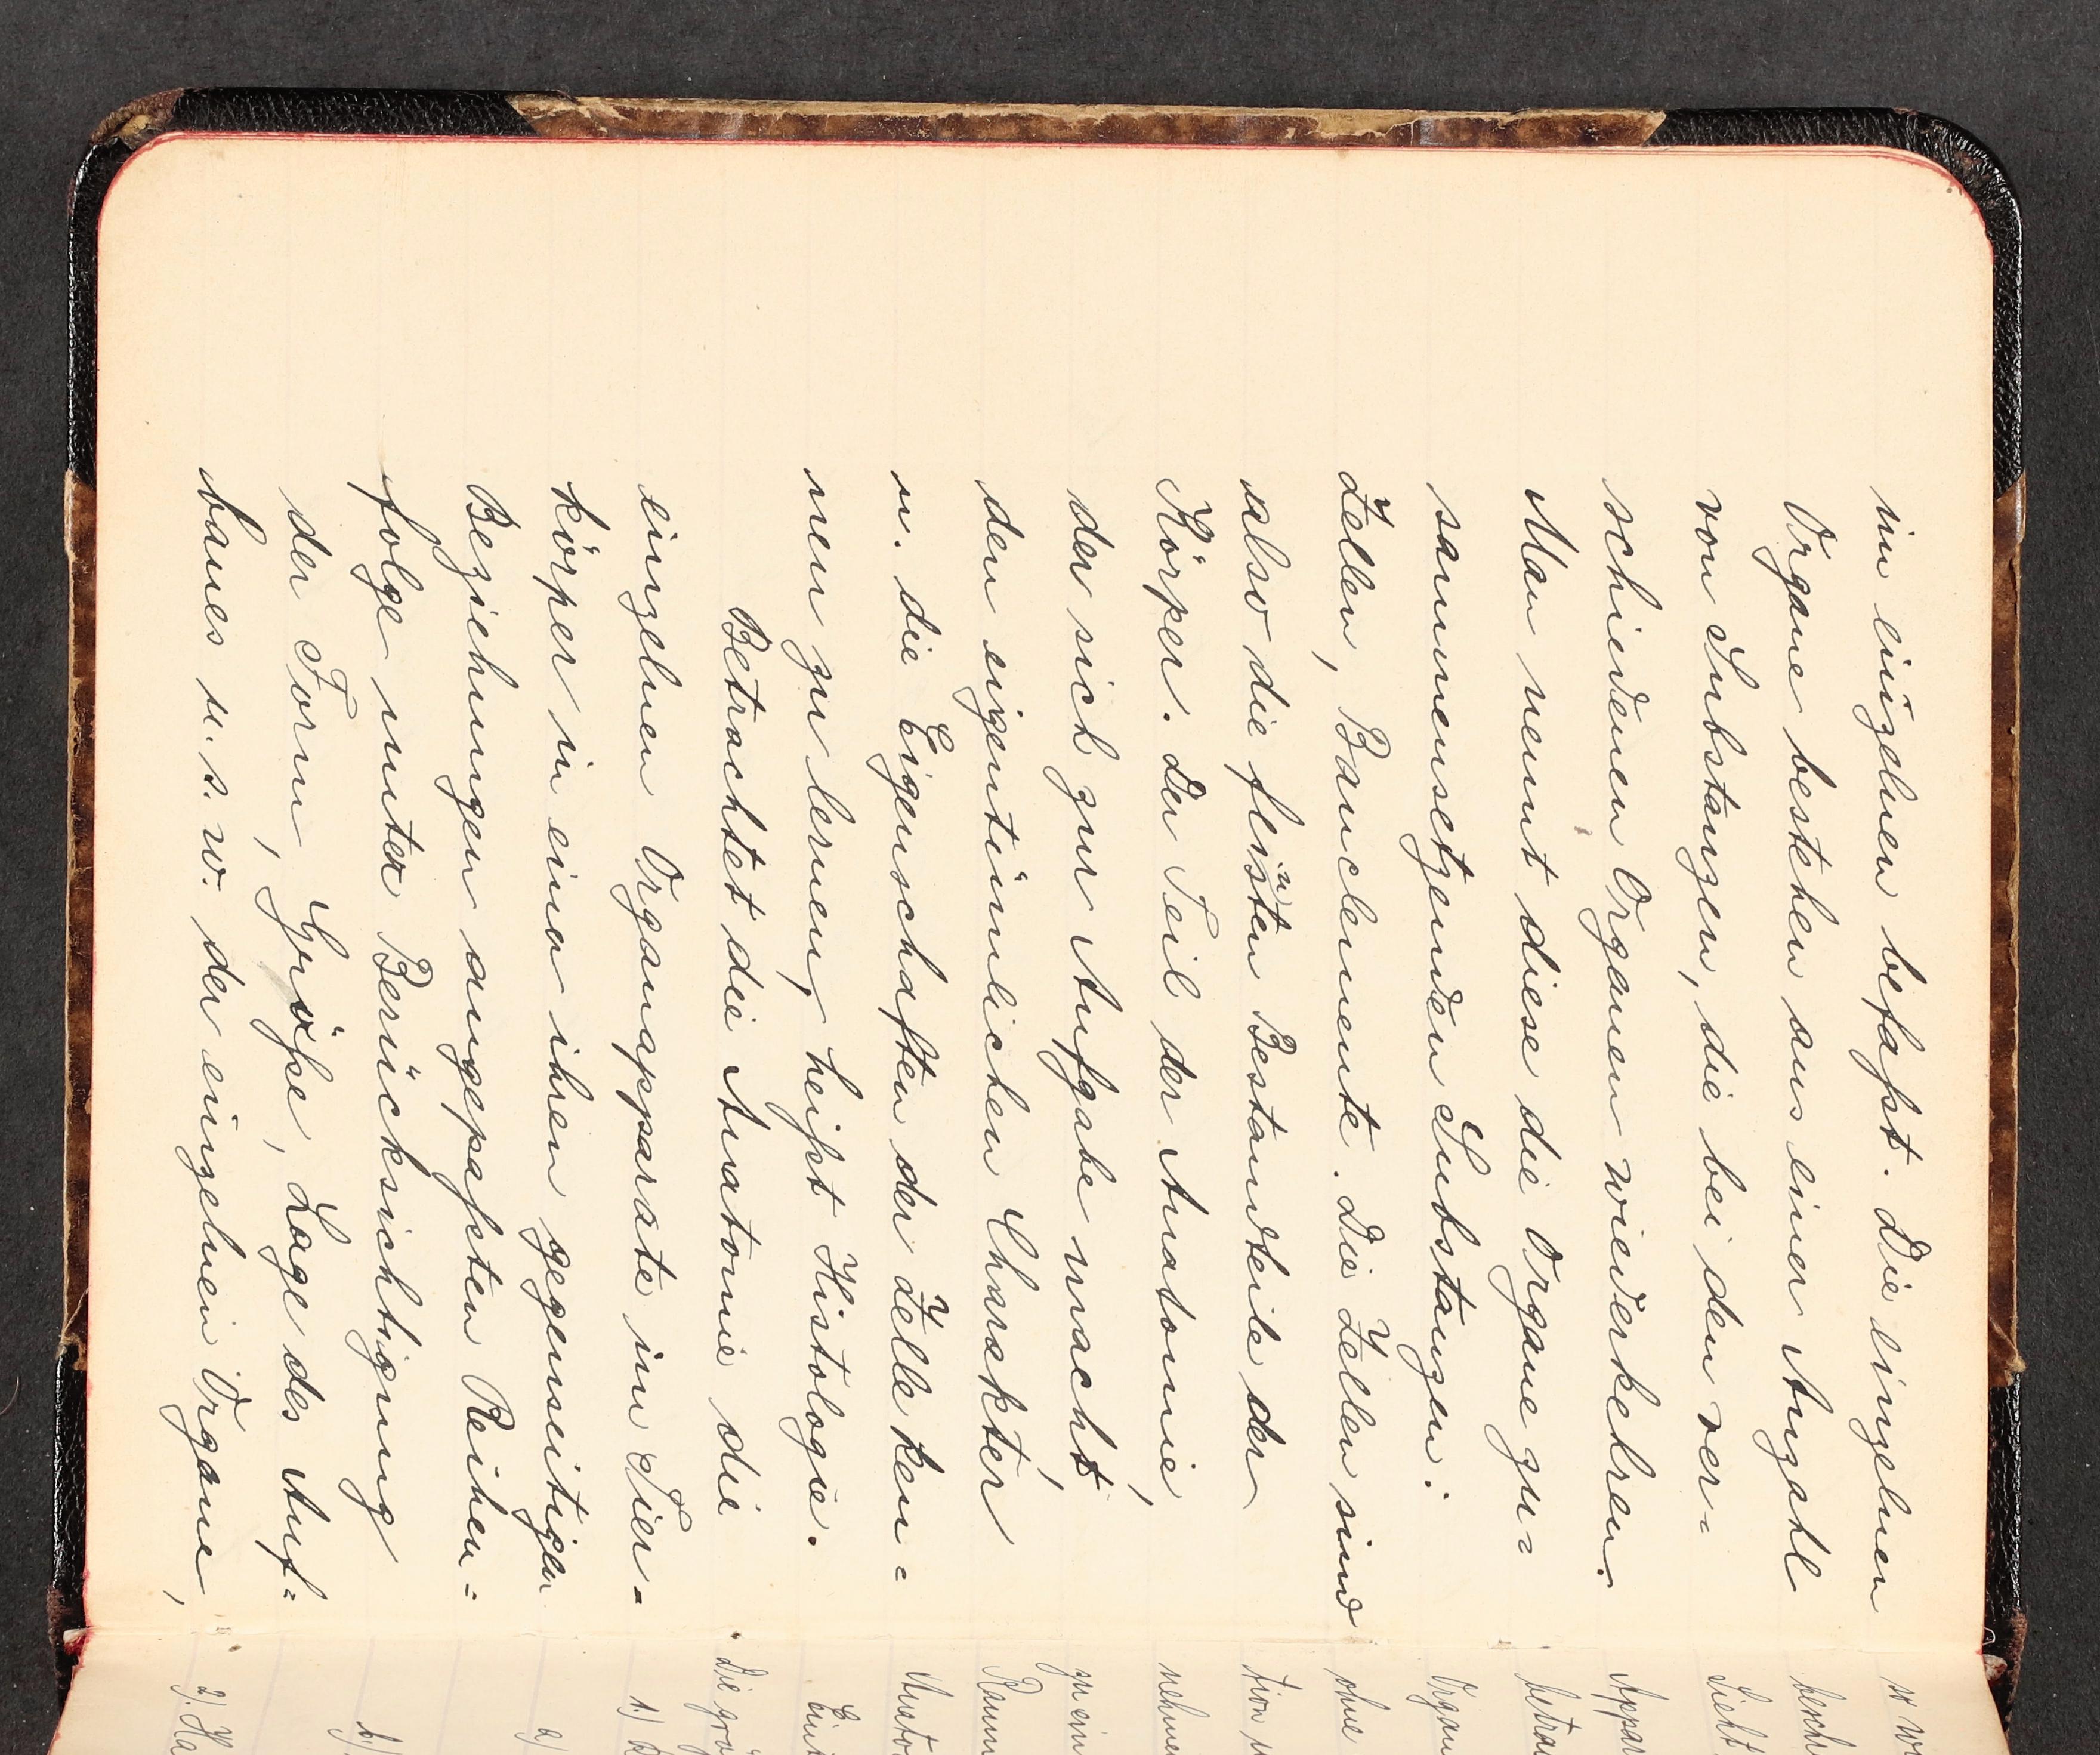 im einzelnen befaßt. Die einzelnen
Organe bestehen aus einer Anzahl
von Substanzen, die bei den ver-
schiedenen Organen wiederkehren.
Man nennt diese die Organe zu-
sammensetzenden Substanzen:
Zellen, Bauelemente. Die Zellen sind
also die fleisten Bestandteile der
Körper. Der Teil der Anatomie,
der sich zur Aufgabe macht,
den eigentümlichen Charakter
u. die Eigenschaften der Zelle ken-
nen zu lernen, heißt Histologie.
Betrachtet die Anatomie die
einzelnen Organapparate im Tier-
körper in einer ihren gegenseitigen
Beziehungen angepaßten Reihen-
folge unter Berücksichtigung
der Form, Größe, Lage des Auf-
baues u. s. w. der einzelnen Organe,
so
besch
Sieht
Appar
betra
Organ
ohne
tion
nehme
zu ein
Raum
Anato
Eint
Die grö
1.)
a)
b.)
2.) Ha